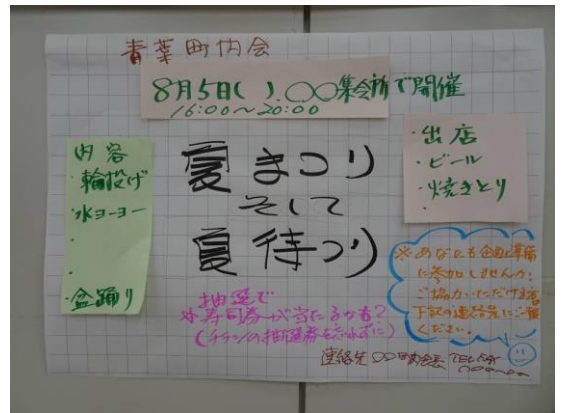 青葉町内会
8月5日( ).〇〇集会所で開催
16:00〜20:00
内容
・輪投げ
・水ヨーヨー
・
・
・盆踊り
夏まつり
そして
夏待つり
・出店
・ビール
・焼きとり
・
抽選で
寿司券が当たるかも?
(チラシの抽選券を忘れずに)
※あなたも企画準備
に参加しませんか?
ご協力いただける方
下記の連絡先にご
ください。
連絡先〇〇町内会長 TEL